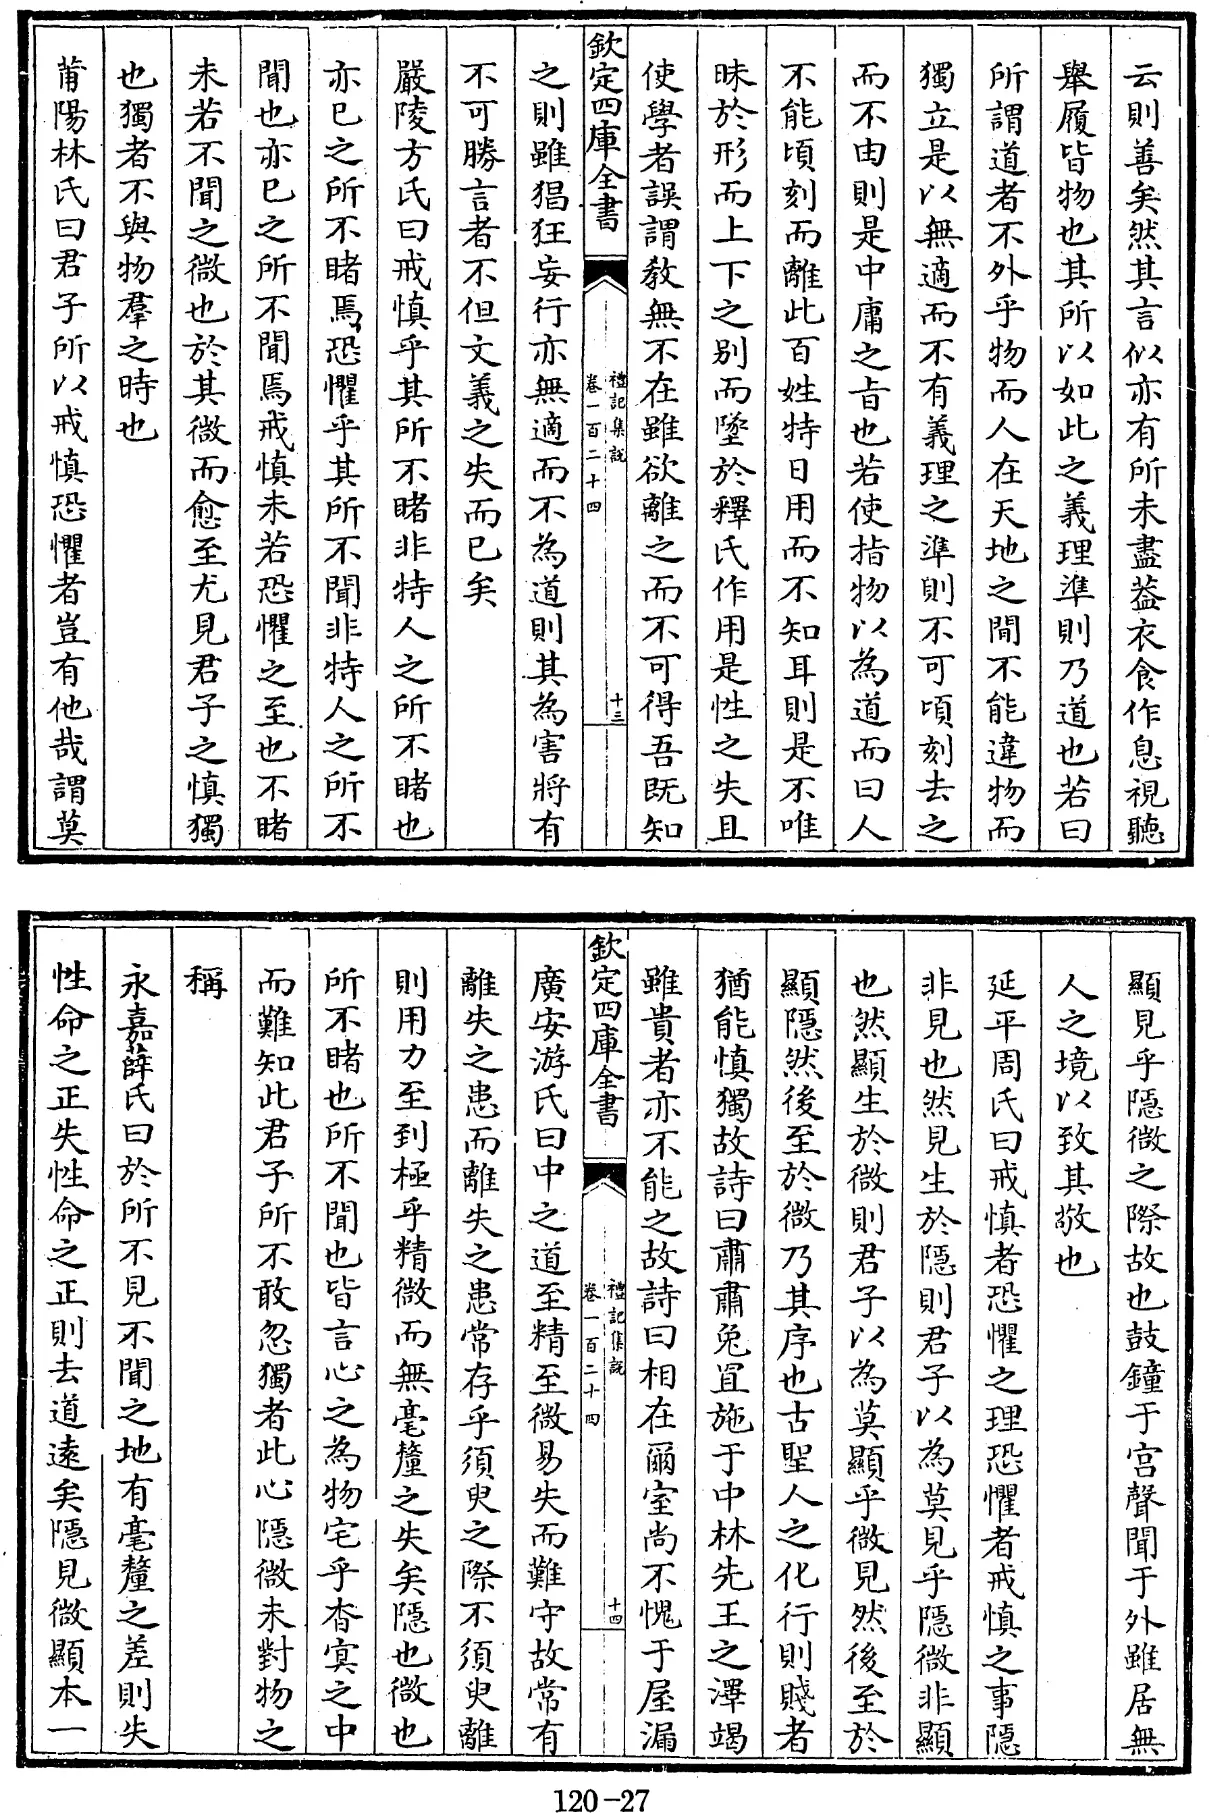 云則善矣然其言似亦有所未盡葢衣食作息視聽
舉履皆物也其所以如此之義理準則乃道也若曰
所謂道者不外乎物而人在天地之間不能違物而
獨立是以無適而不有義理之準則不可頃刻去之
而不由則是中庸之旨也若使指物以為道而曰人
不能頃刻而離此百姓特日用而不知耳則是不唯
昧於形而上下之别而墜於釋氏作用是性之失且
使學者誤謂教無不在雖欲離之而不可得吾既知
欽定四庫全書
禮記集說
卷一百二十四
十三
之則雖猖狂妄行亦無適而不為道則其為害將有
不可勝言者不但文義之失而已矣
嚴陵方氏曰戒慎乎其所不睹非特人之所不睹也
亦已之所不睹焉恐懼乎其所不聞非特人之所不
聞也亦已之所不聞焉戒慎未若恐懼之至也不睹
未若不聞之微也於其微而愈至尤見君子之慎獨
也獨者不與物羣之時也
莆陽林氏曰君子所以戒慎恐懼者豈有他哉謂莫
顯見乎隱微之際故也鼓鐘于宫聲聞于外雖居無
人之境以致其敬也
延平周氏曰戒慎者恐懼之理恐懼者戒慎之事隱
非見也然見生於隱則君子以為莫見乎隱微非顯
也然顯生於微則君子以為莫顯乎微見然後至於
顯隱然後至於微乃其序也古聖人之化行則賤者
猶能慎獨故詩曰肅肅兔罝施于中林先王之澤竭
雖貴者亦不能之故詩曰相在爾室尚不愧于屋漏
欽定四庫全書
禮記集說
卷一百二十四
十四
廣安游氏曰中之道至精至微易失而難守故常有
離失之患而離失之患常存乎須臾之際不須臾離
則用力至到極乎精微而無毫釐之失矣隱也微也
所不睹也所不聞也皆言心之為物宅乎杳冥之中
而難知此君子所不敢忽獨者此心隱微未對物之
稱
永嘉薛氏曰於所不見不聞之地有毫釐之差則失
性命之正失性命之正則去道遠矣隱見微顯本一
120-27